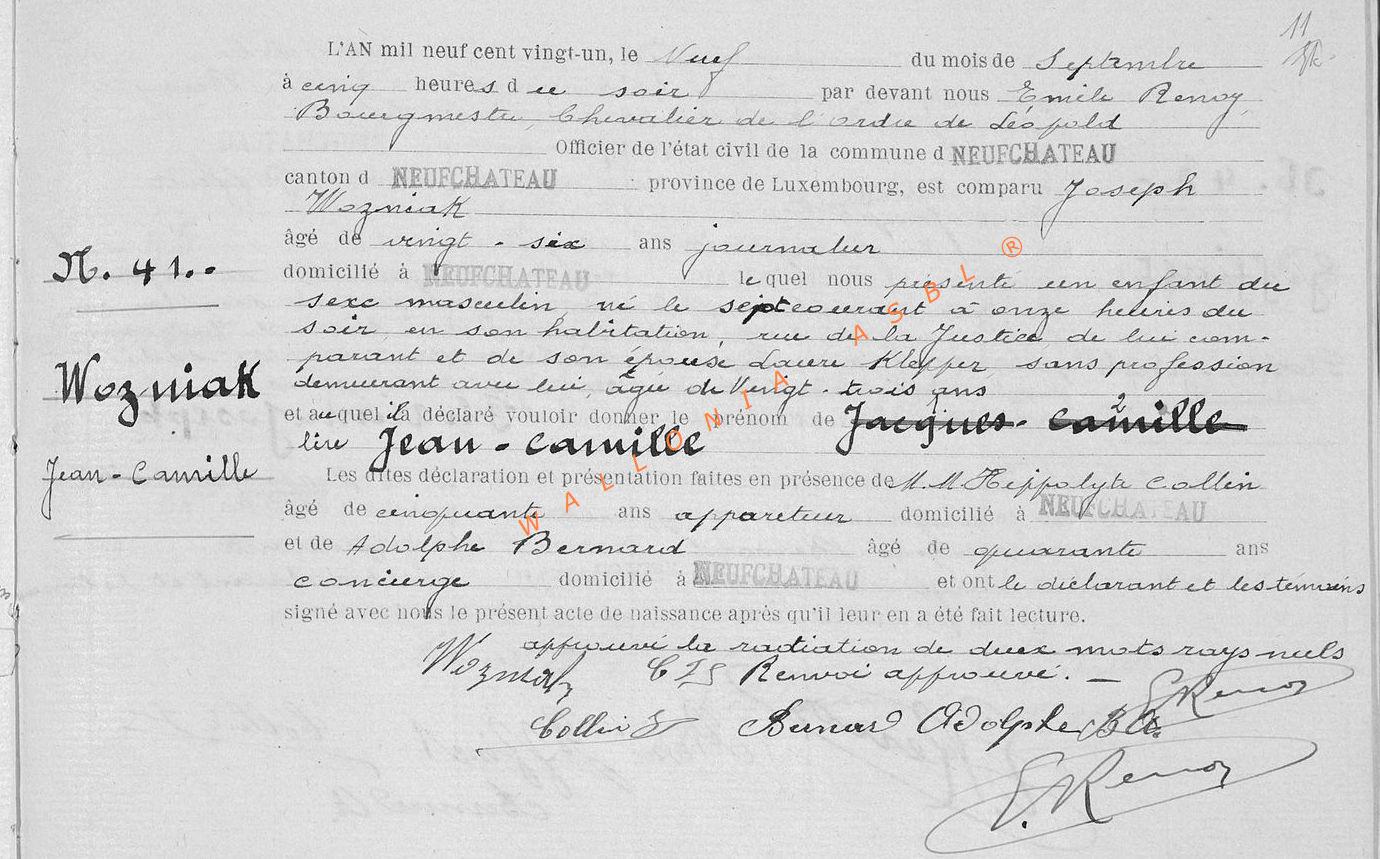 11
L'AN mil neuf cent vingt-un, le Neuf du mois de Septembre
à cinq heures du soir par devant nous Emile Renoy,
Bourgmestre, Chevalier de l'ordre de Léopold
Officier de l'état civil de la commune d NEUFCHATEAU
canton d NEUFCHATEAU province de Luxembourg, est comparu Joseph
Wozniak
âgé de vingt-six ans journalier
N. 41..
domicilié à NEUFCHATEAU lequel nous présente un enfant du
sexe masculin né le sept courant à onze heures du
soir, en son habitation, rue de la Justice de lui com-
parant et de son épouse Laure Klepper sans profession
Wozniak
demeurant avec lui, âgée de Vingt-trois ans
et auquel il a déclaré vouloir donner le prénom de Jacques-Camille
lire Jean-Camille
Jean-Camille
Les dites déclaration et présentation faites en présence de M.M. Hippolyte Collin
âgé de cinquante ans appariteur domicilié à NEUFCHATEAU
et de Adolphe Bernard âgé de quarante ans
concierge domicilié à NEUFCHATEAU et ont le déclarant et les témoins
signé avec nous le présent acte de naissance après qu'il leur en a été fait lecture.
approuvé la radiation de deux mots rayés nuls
Wozniak Renvoi approuvé. — E Renoy
Collin Bernard Adolphe
E. Renoy
WALLONIA ASBL ®